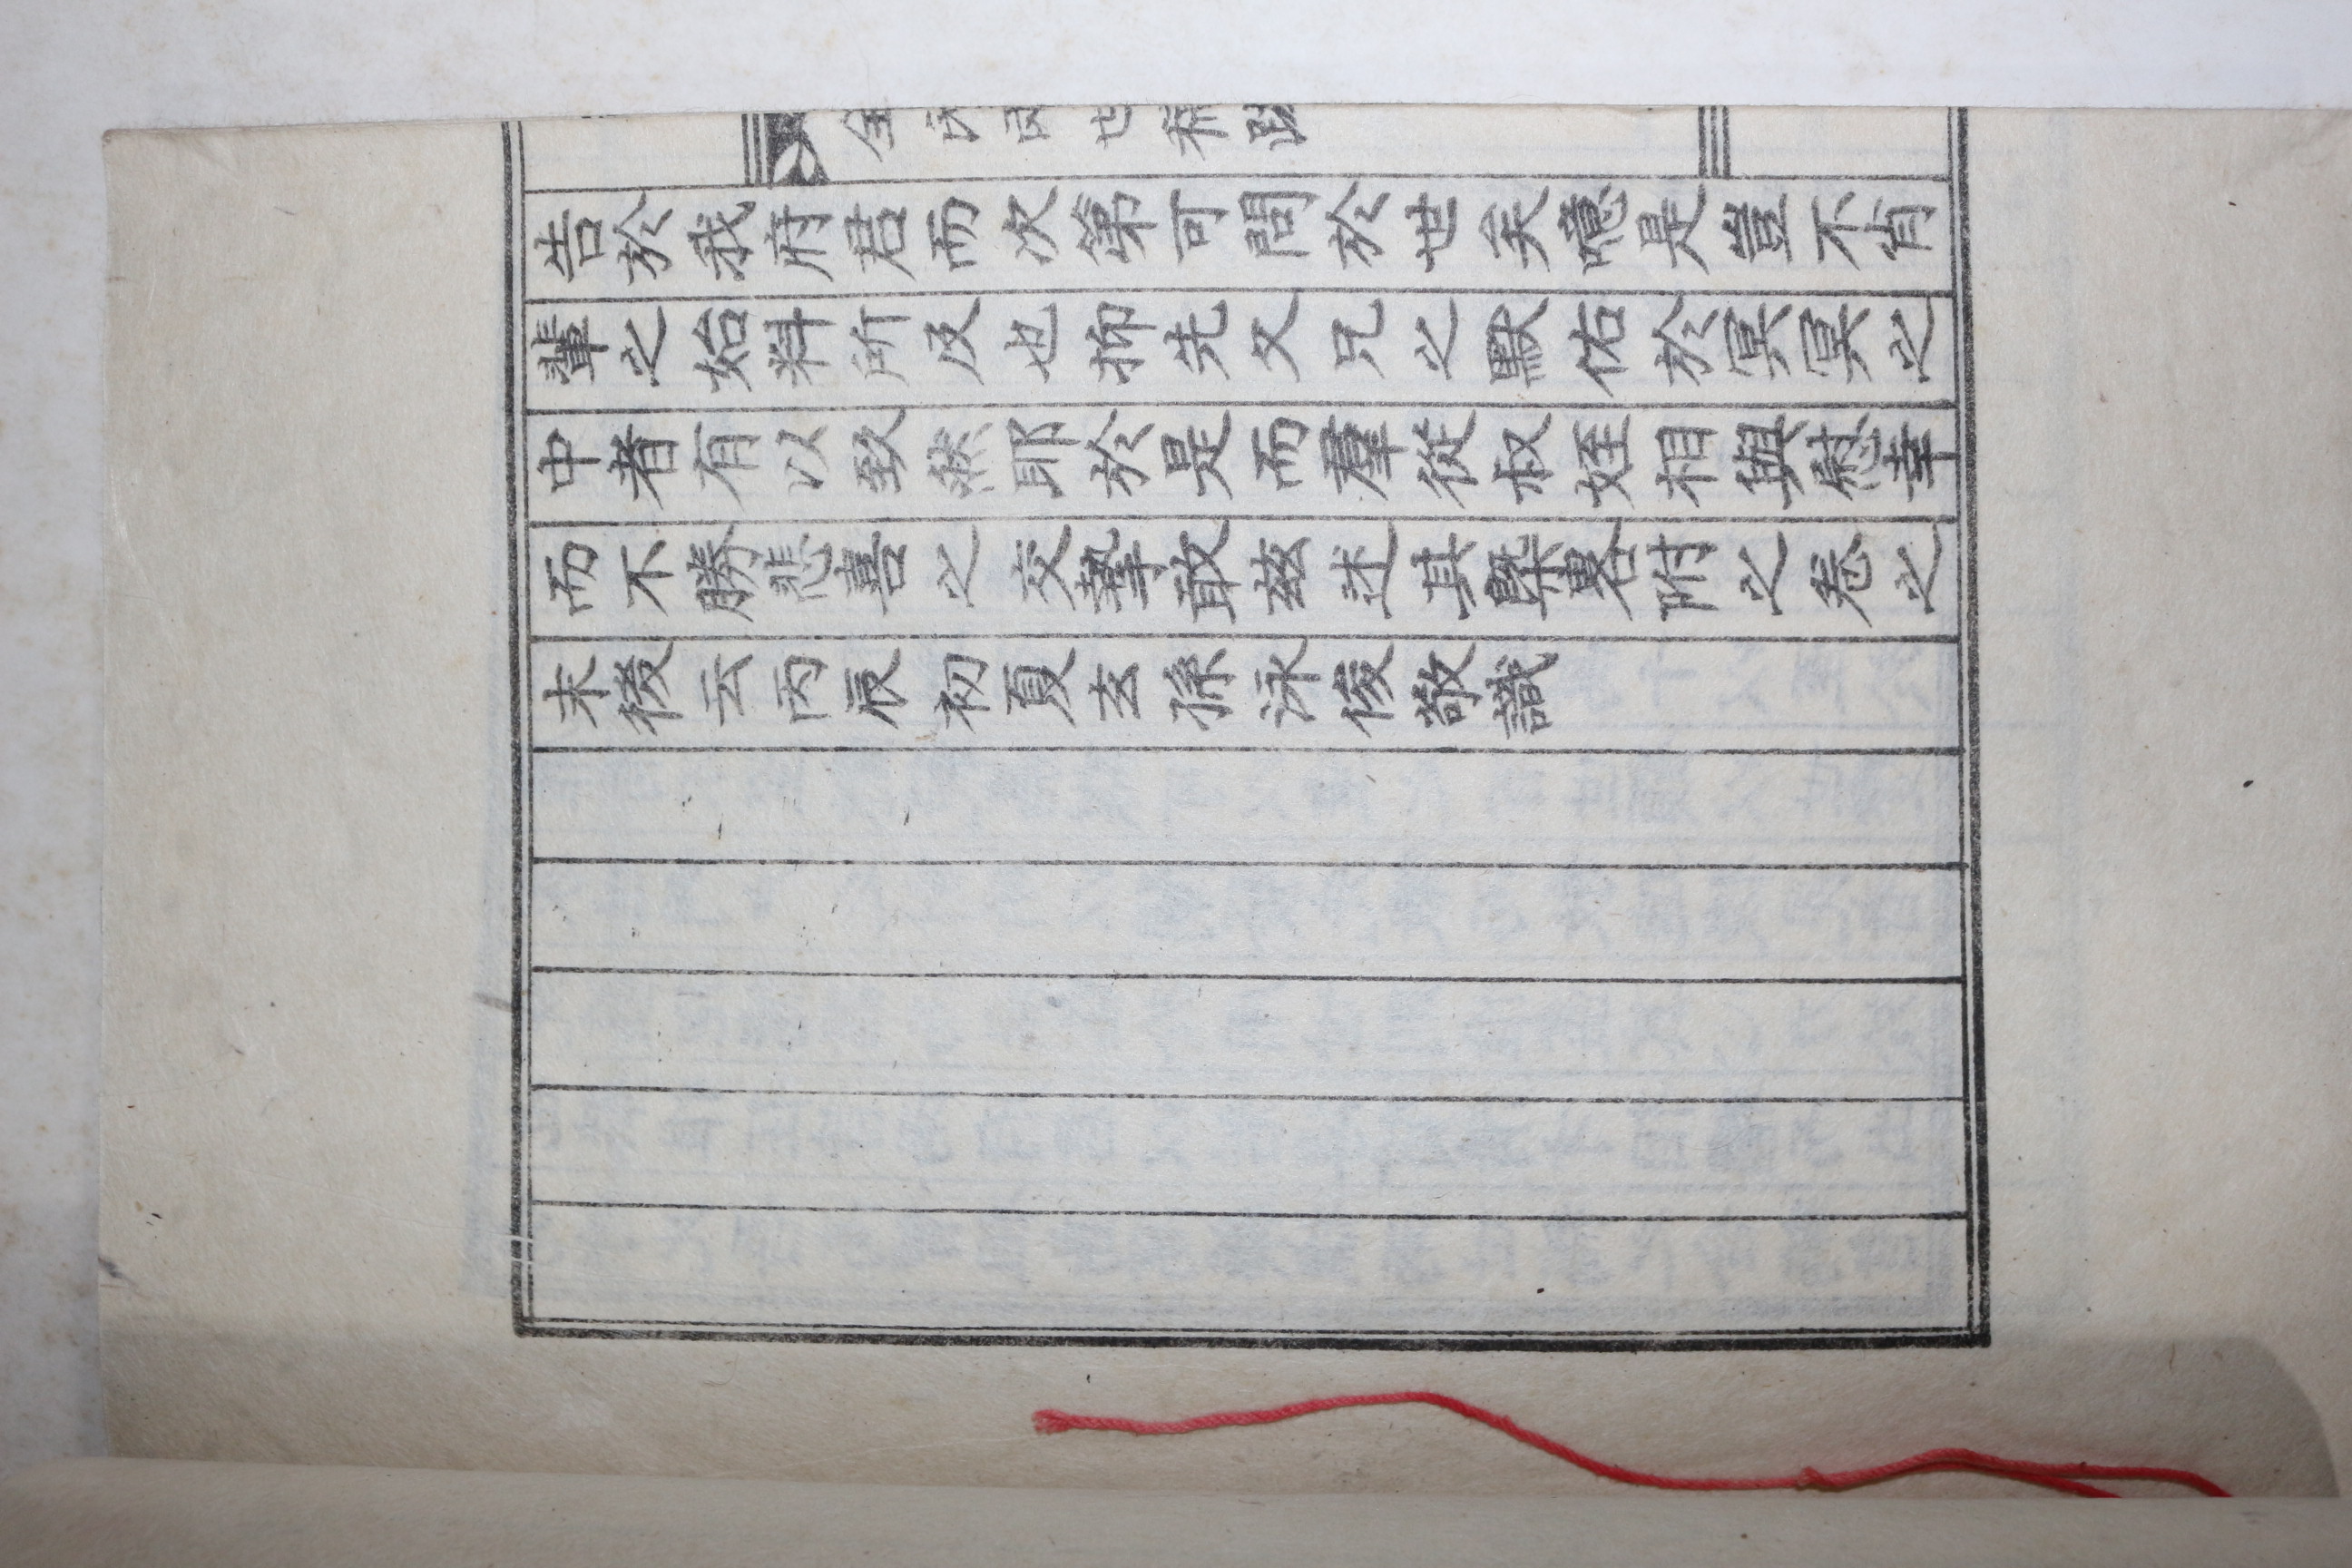 全氏世稿跋
告於我府君而次第可問於世矣噫是豈不肖
輩之始料所及也抑先父兄之默佑於冥冥之
中者有以致然耶於是而羣從叔姪相與慰幸
而不勝悲喜之交摯敢玆述其槩畧附之卷之
末後云丙辰初夏玄孫泳俊敬識